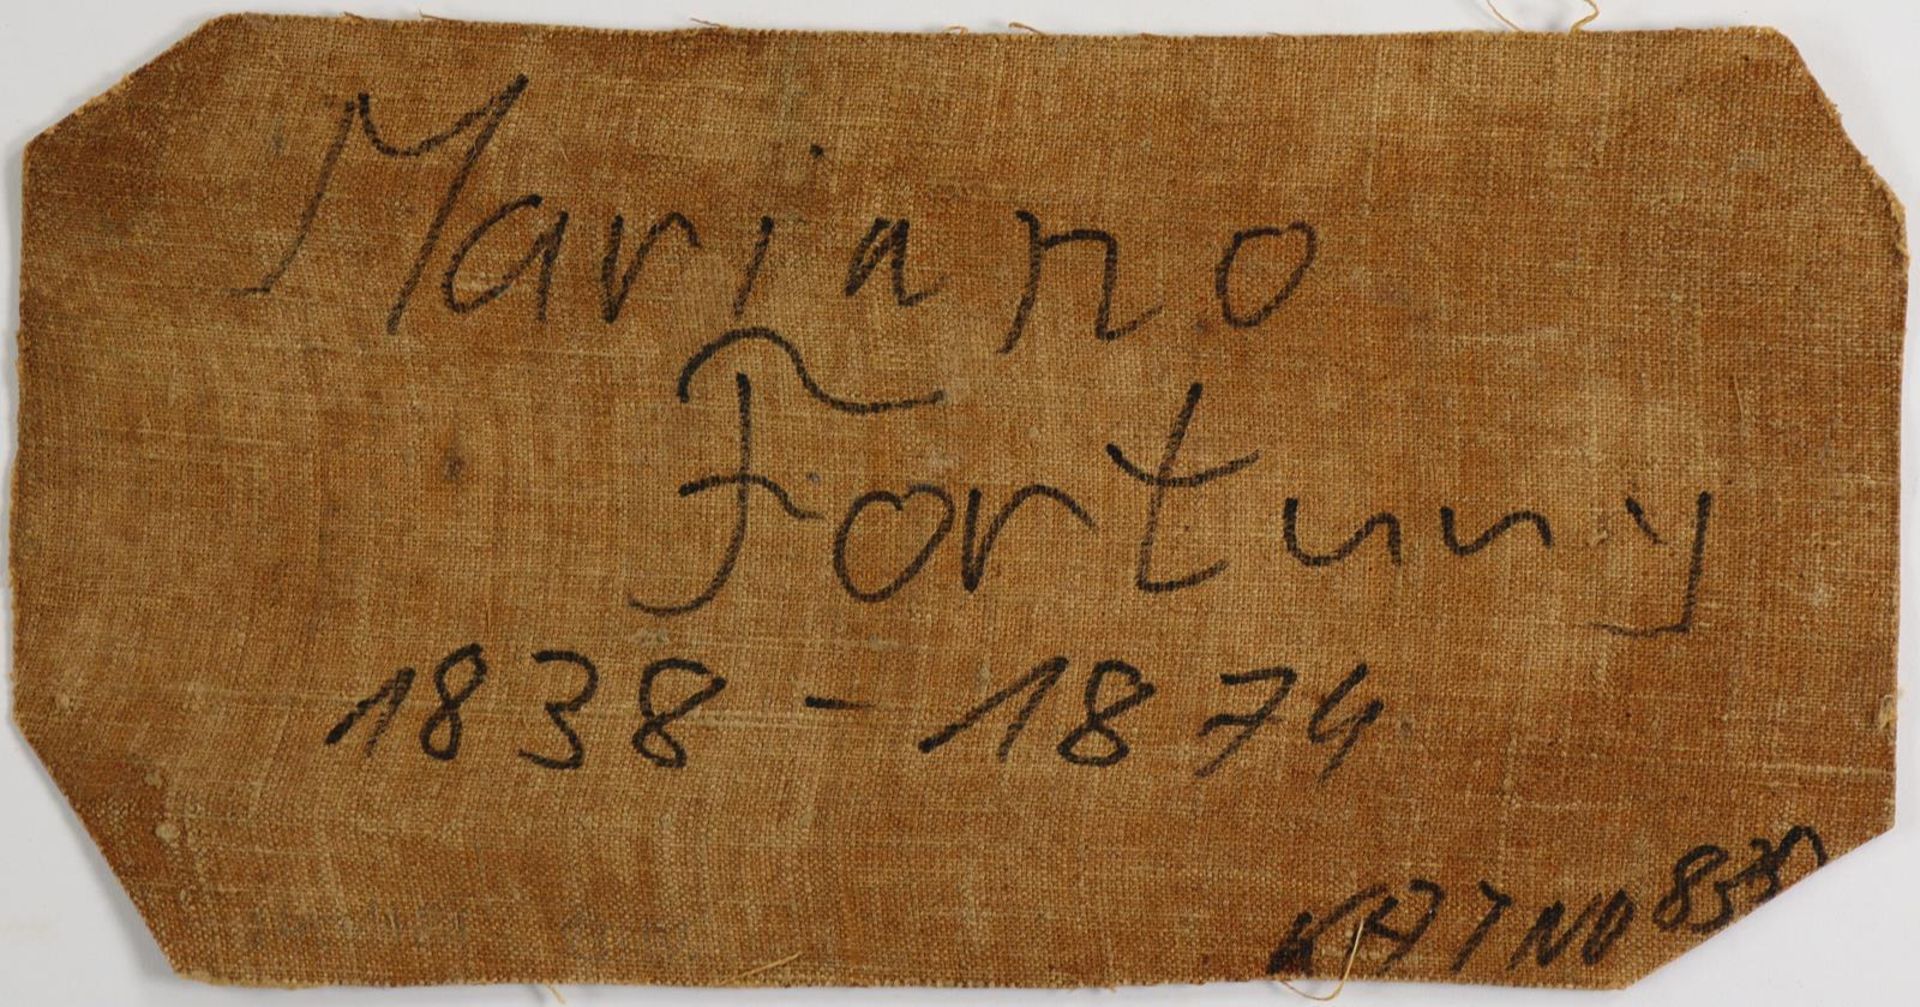 Mariano
Fortuny
1838 - 1874
KATNO